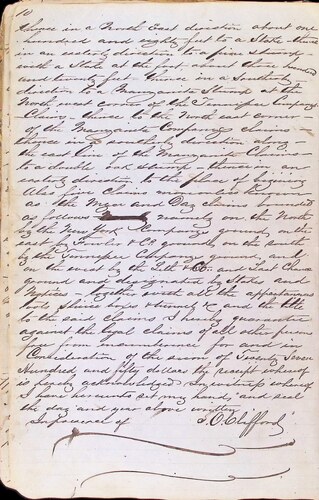 10
Thence in a North East direction about one
hundred and eighty feet to a Stake thence
in an easterly direction to a pine Stump
with a Stake at the foot about three hundred
and twenty feet - thence in a Southerly
direction to a Manzanita Stump at the
North west corner of the Company
Claims - thence to the North east corner
of the Manzanita Company claims -
thence in a southerly direction along
the east line of the Manzanita Claims
to a double oak stump - thence in an
direction to the place of begining
Also five claims more or less known
as the and Day claims bounded
as follows namely on the North
by the New York Company ground, on the
east by Fowler & Co ground, on the south
by the Company ground, and
on the west by the & Co and Last Chance
ground and designated by Stakes and
Notices - together with all the appertances
the title
to the said claims I hereby guarantee
against the legal claims of all other persons
free from encumberance for and in
Consideration of the sum of Twenty Seven
Hundred and fifty dollars the receipt whereof
is hereby acknowledged. In witness whereof
I have hereunto set my hand and seal
the day and year above written
In presence of J. O. Clifford